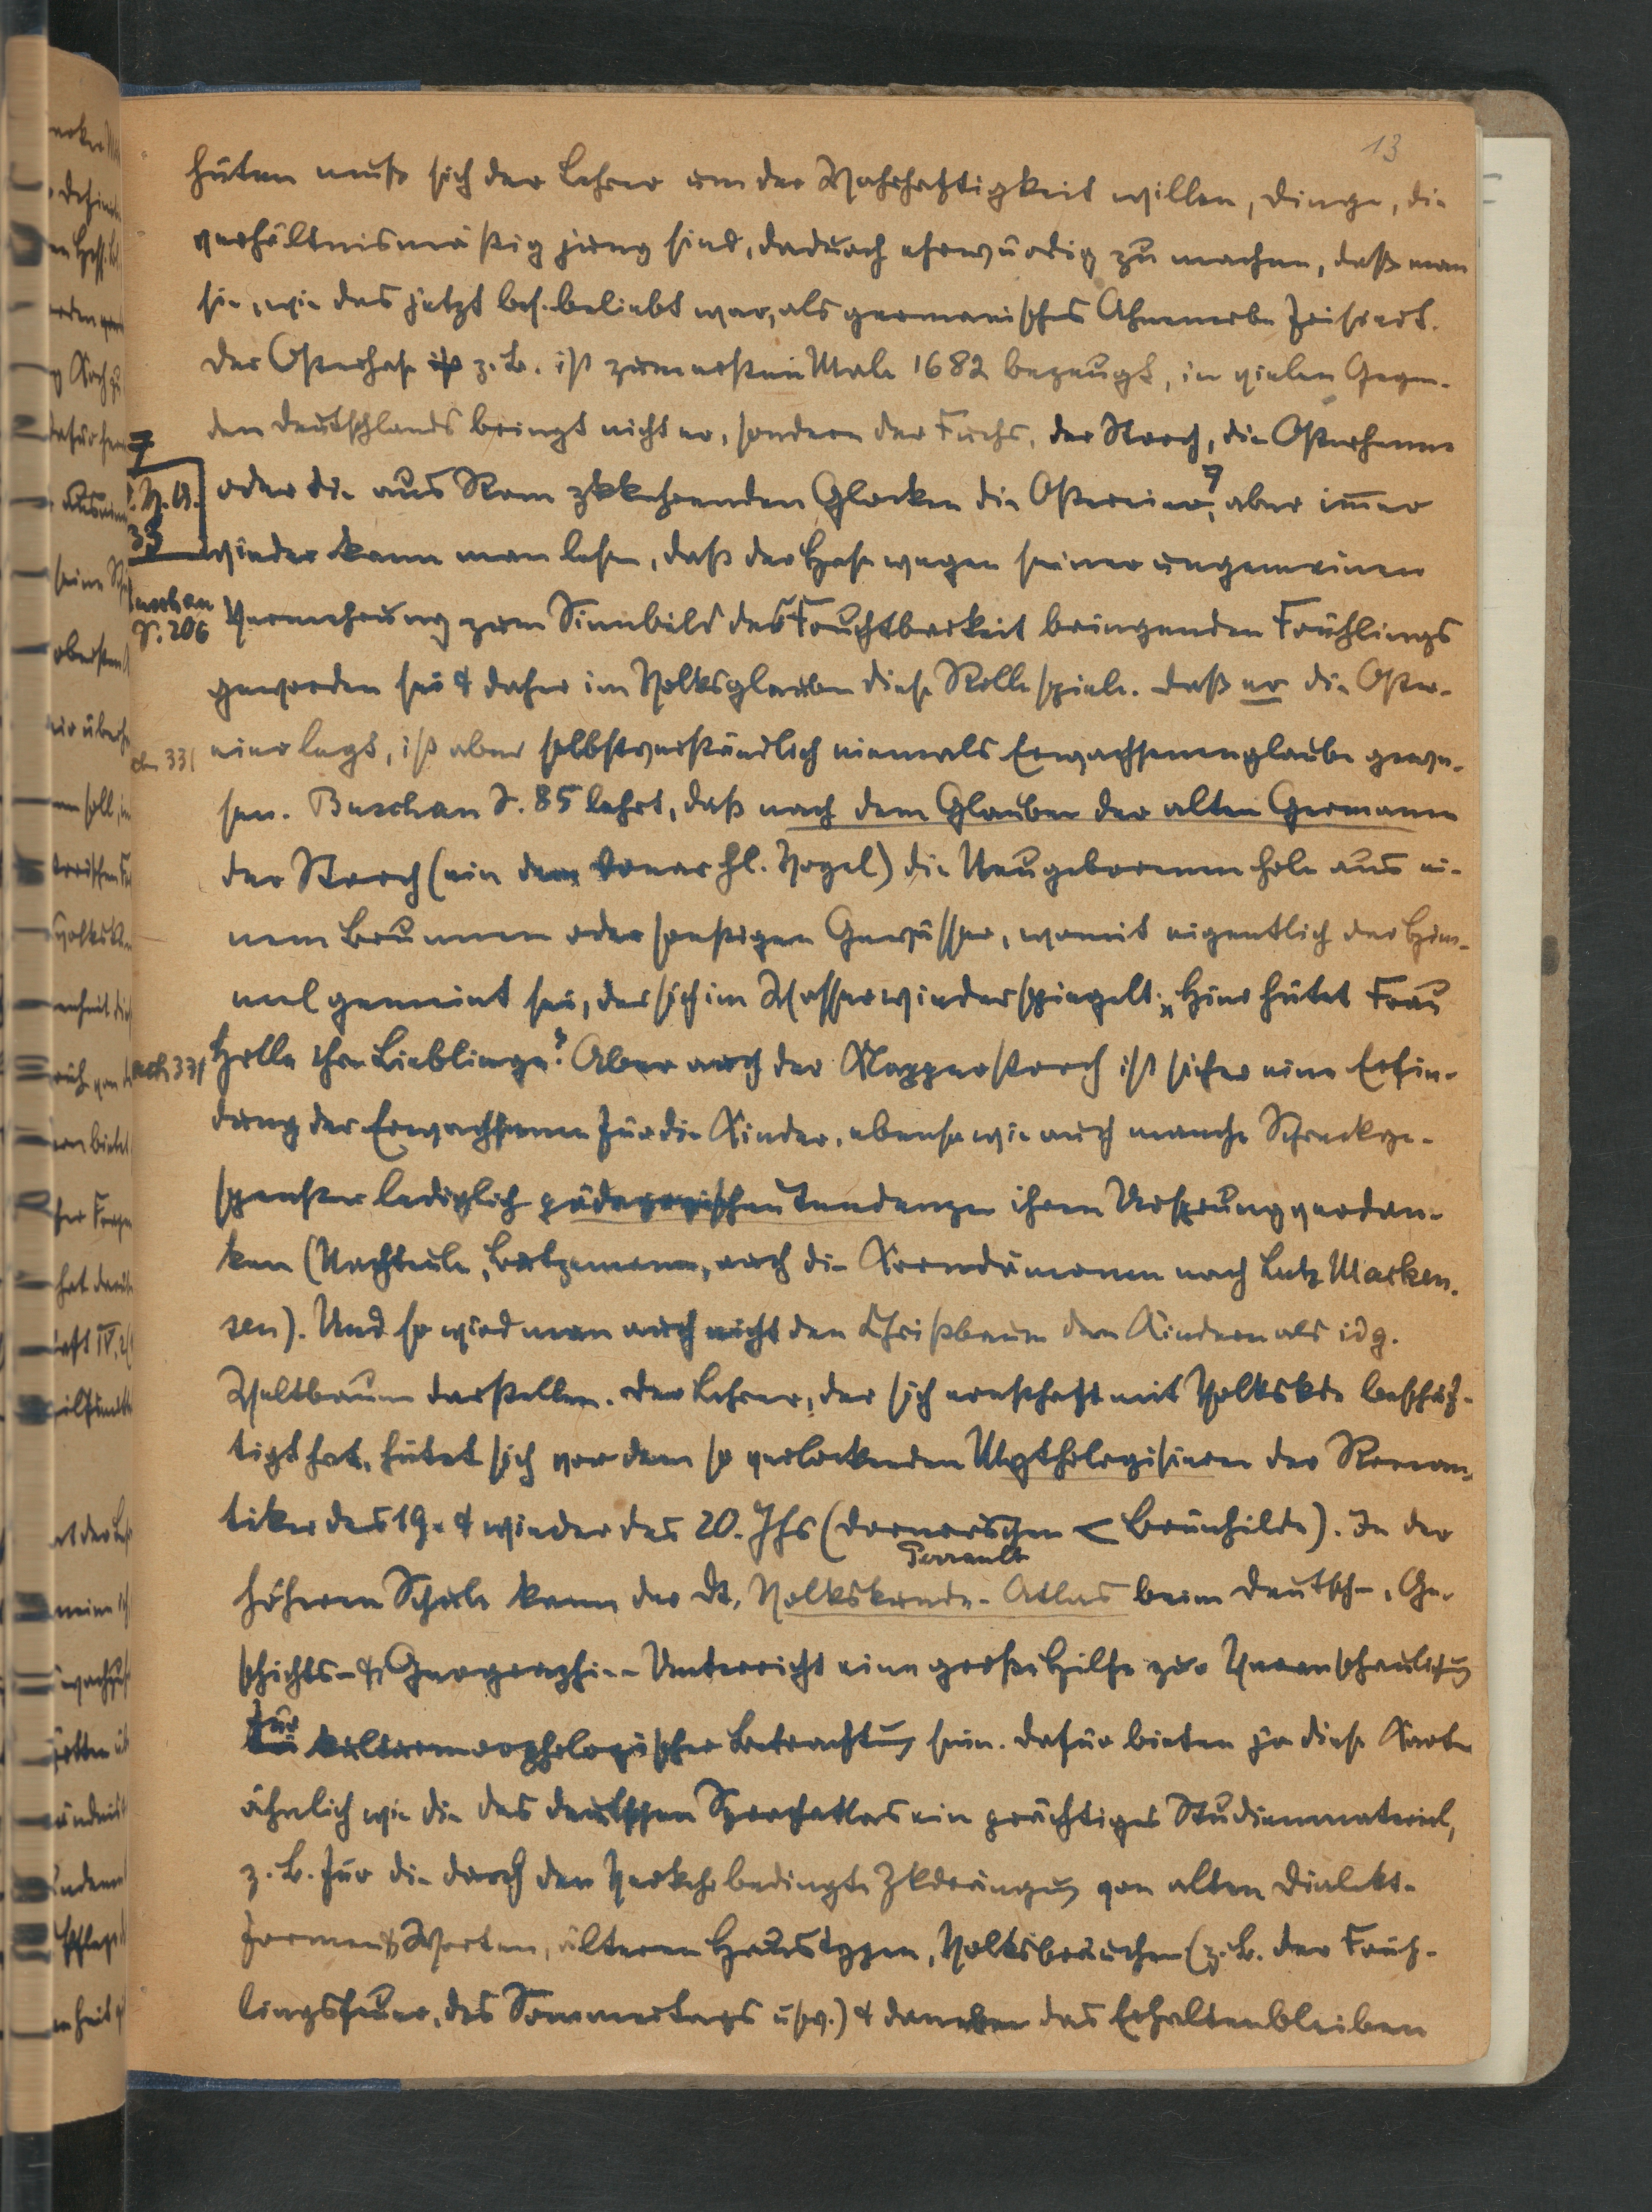 13
hüten muß sich der Lehrer um der Wahrhaftigkeit willen, Dinge, die
verhältnismäßig jung sind, dadurch ehrwürdig zu machen, daß man
sie, wie das jetzt bes. beliebt war, als germanisches Ahnenerbe frisiert.
Der Osterhase z. B. ist zum ersten Male 1682 bezeugt, in vielen Gegen-
den Deutschlands bringt nicht er, sondern der Fuchs, der Storch, die Osterhenne
oder die aus Rom zkkehrenden Glocken die Ostereier, aber im̄er
wieder kann man lesen, daß der Hase wegen seiner ungemeinen
Buschan
S. 206
Vermehrung zum Sinnbild des Fruchtbarkeit bringenden Frühlings
geworden sei & daher im Volksglauben diese Rolle spiele. Daß er die Oster-
331
eier legt, ist aber selbstverständlich niemals Erwachsenenglaube gewe-
sen. Buschan S. 85 lehrt, daß nach dem Glauben der alten Germanen
der Storch (ein dem Donar hl. Vogel) die Neugeborenen hole aus ei-
nem Brunnen oder sonstigen Gewässer, womit eigentlich der Him-
mel gemeint sei, der sich im Wasser wiederspiegelt: „Hier hütet Frau
331
Holle ihre Lieblinge“. Aber auch der Klapperstorch ist sicher eine Erfin-
dung der Erwachsenen für die Kinder, ebenso wie auch manche Schreckge-
spenster lediglich pädagogischen Tendenzen ihren Ursprung verdan-
ken (Nachteule, Butzemann, auch die Korndämonen nach Lutz Macken-
sen). Und so wird man auch nicht den Christbaum den Kindern als idg.
Weltbaum darstellen. Der Lehrer, der sich ernsthaft mit Volkskde beschäf-
tigt hat, hütet sich vor dem so verlockenden Mythologisieren der Roman-
tiker des 19. & wieder des 20. Jhs (Dornröschen < Brünhilde). In der
Perrault
höheren Schule kann der Dt. Volkskunde-Atlas beim Deutsch-, Ge-
schichts- & Geographie-Unterricht eine große Hilfe zur Veranschaulichung
für
kulturmorphologischer Betrachtung sein. Dafür bieten ja diese Karten
ähnlich wie die des deutschen Sprachatlas ein prächtiges Studienmaterial,
z. B. für die durch den Verkehr bedingte Zkdrängung von alten Dialekt-
formen & Worten, älteren Haustypen, Volksbräuchen (z. B. der Früh-
lingsfeuer, des Sommertags usw.) & daneben das Erhaltenbleiben